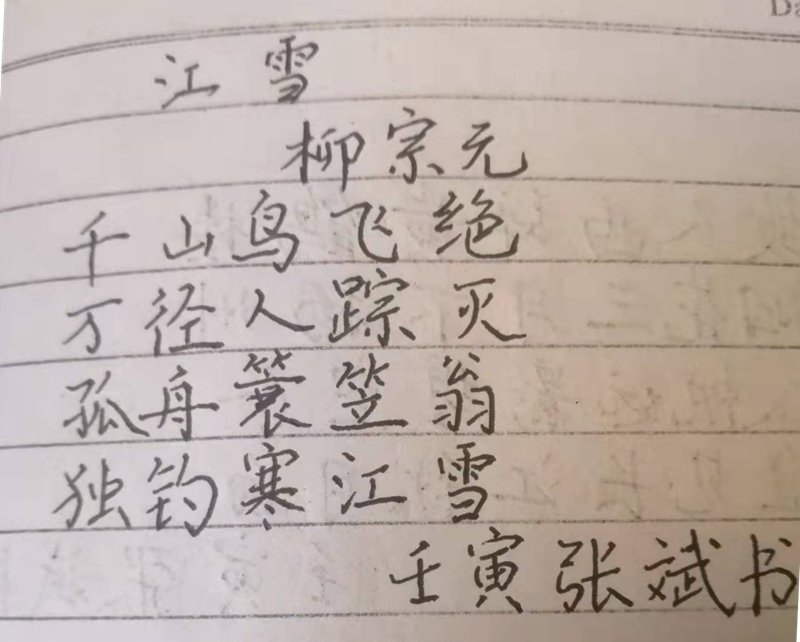 江雪
柳宗元
千山鸟飞绝
万径人踪灭
孤舟簑笠翁
独钓寒江雪
壬寅张斌书